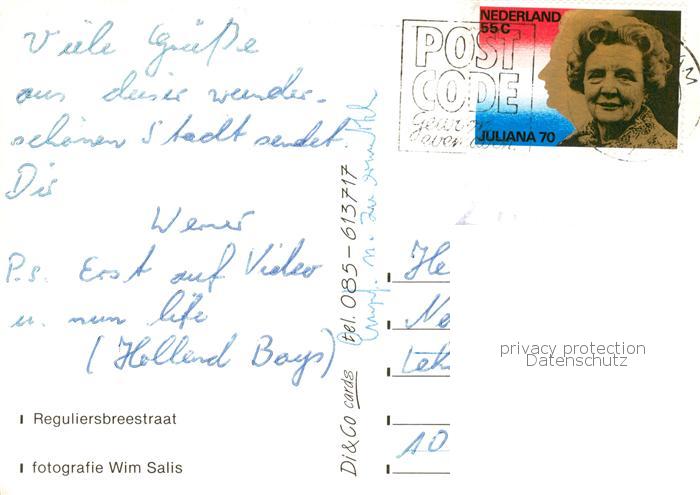 Viele Grüße
aus dieser wunder-
schönen Stadt sendet
Dir
Werner
P.s. Erst auf Video
u. nun life
(Hollend Boys)
Reguliersbreestraat
fotografie Wim Salis
Di&Co cards tel. 085-613717
NEDERLAND
55c
JULIANA 70
POST
CODE
He
Ne
Lek
10
privacy protection
Datenschutz